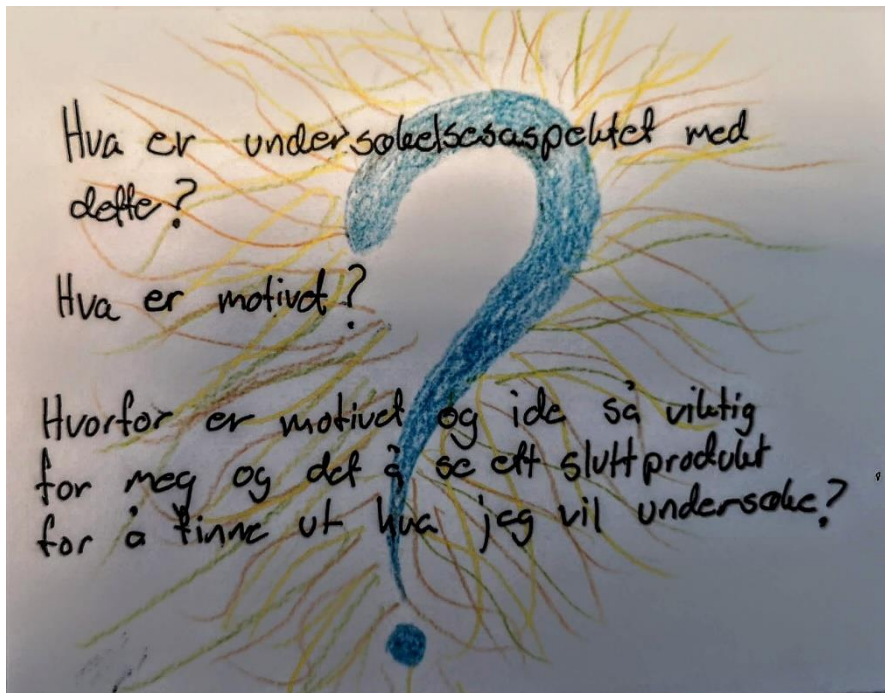 Hva er undersøkelsesaspektet med
dette?
Hva er motivet?
Hvorfor er motivet og ide så viktig
for meg og det å se ett sluttprodukt
for å finne ut hva jeg vil undersøke?